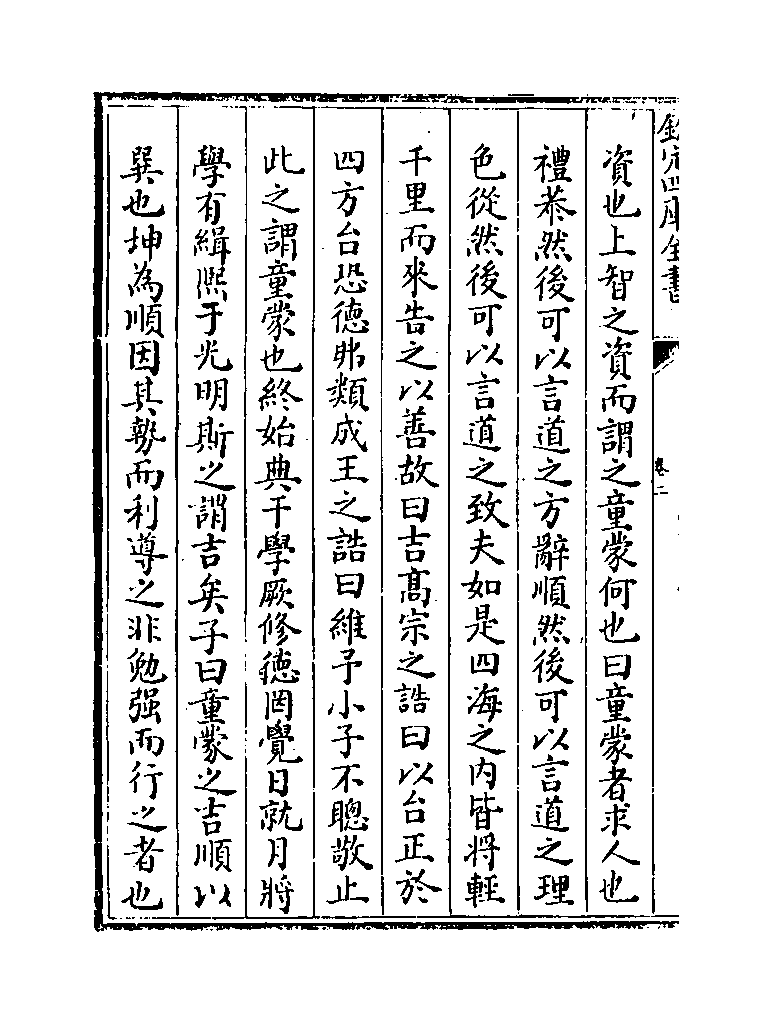 欽定四庫全書
卷二
資也上智之資而謂之童蒙何也曰童蒙者求人也
禮恭然後可以言道之方辭順然後可以言道之理
色從然後可以言道之致夫如是四海之內皆將輕
千里而來告之以善故曰吉高宗之誥曰以台正於
四方台恐德弗類成王之誥曰維予小子不聰敬止
此之謂童蒙也終始典于學厥修德罔覺日就月將
學有緝熈于光明斯之謂吉矣子曰童蒙之吉順以
巽也坤為順因其勢而利導之非勉强而行之者也